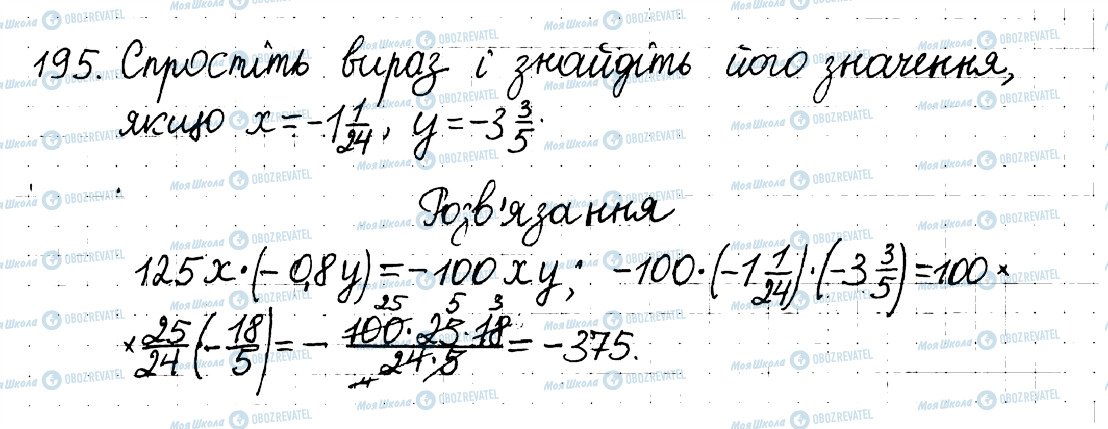 195. Спростіть вираз і знайдіть його значення,
якщо x = -1 1/24, y = -3 3/5.
Розв'язання
125x·(-0,8y) = -100xy; -100·(-1 1/24)·(-3 3/5) = 100 ×
× 25/24 (-18/5) = - 100·25·18/24·5 = -375.